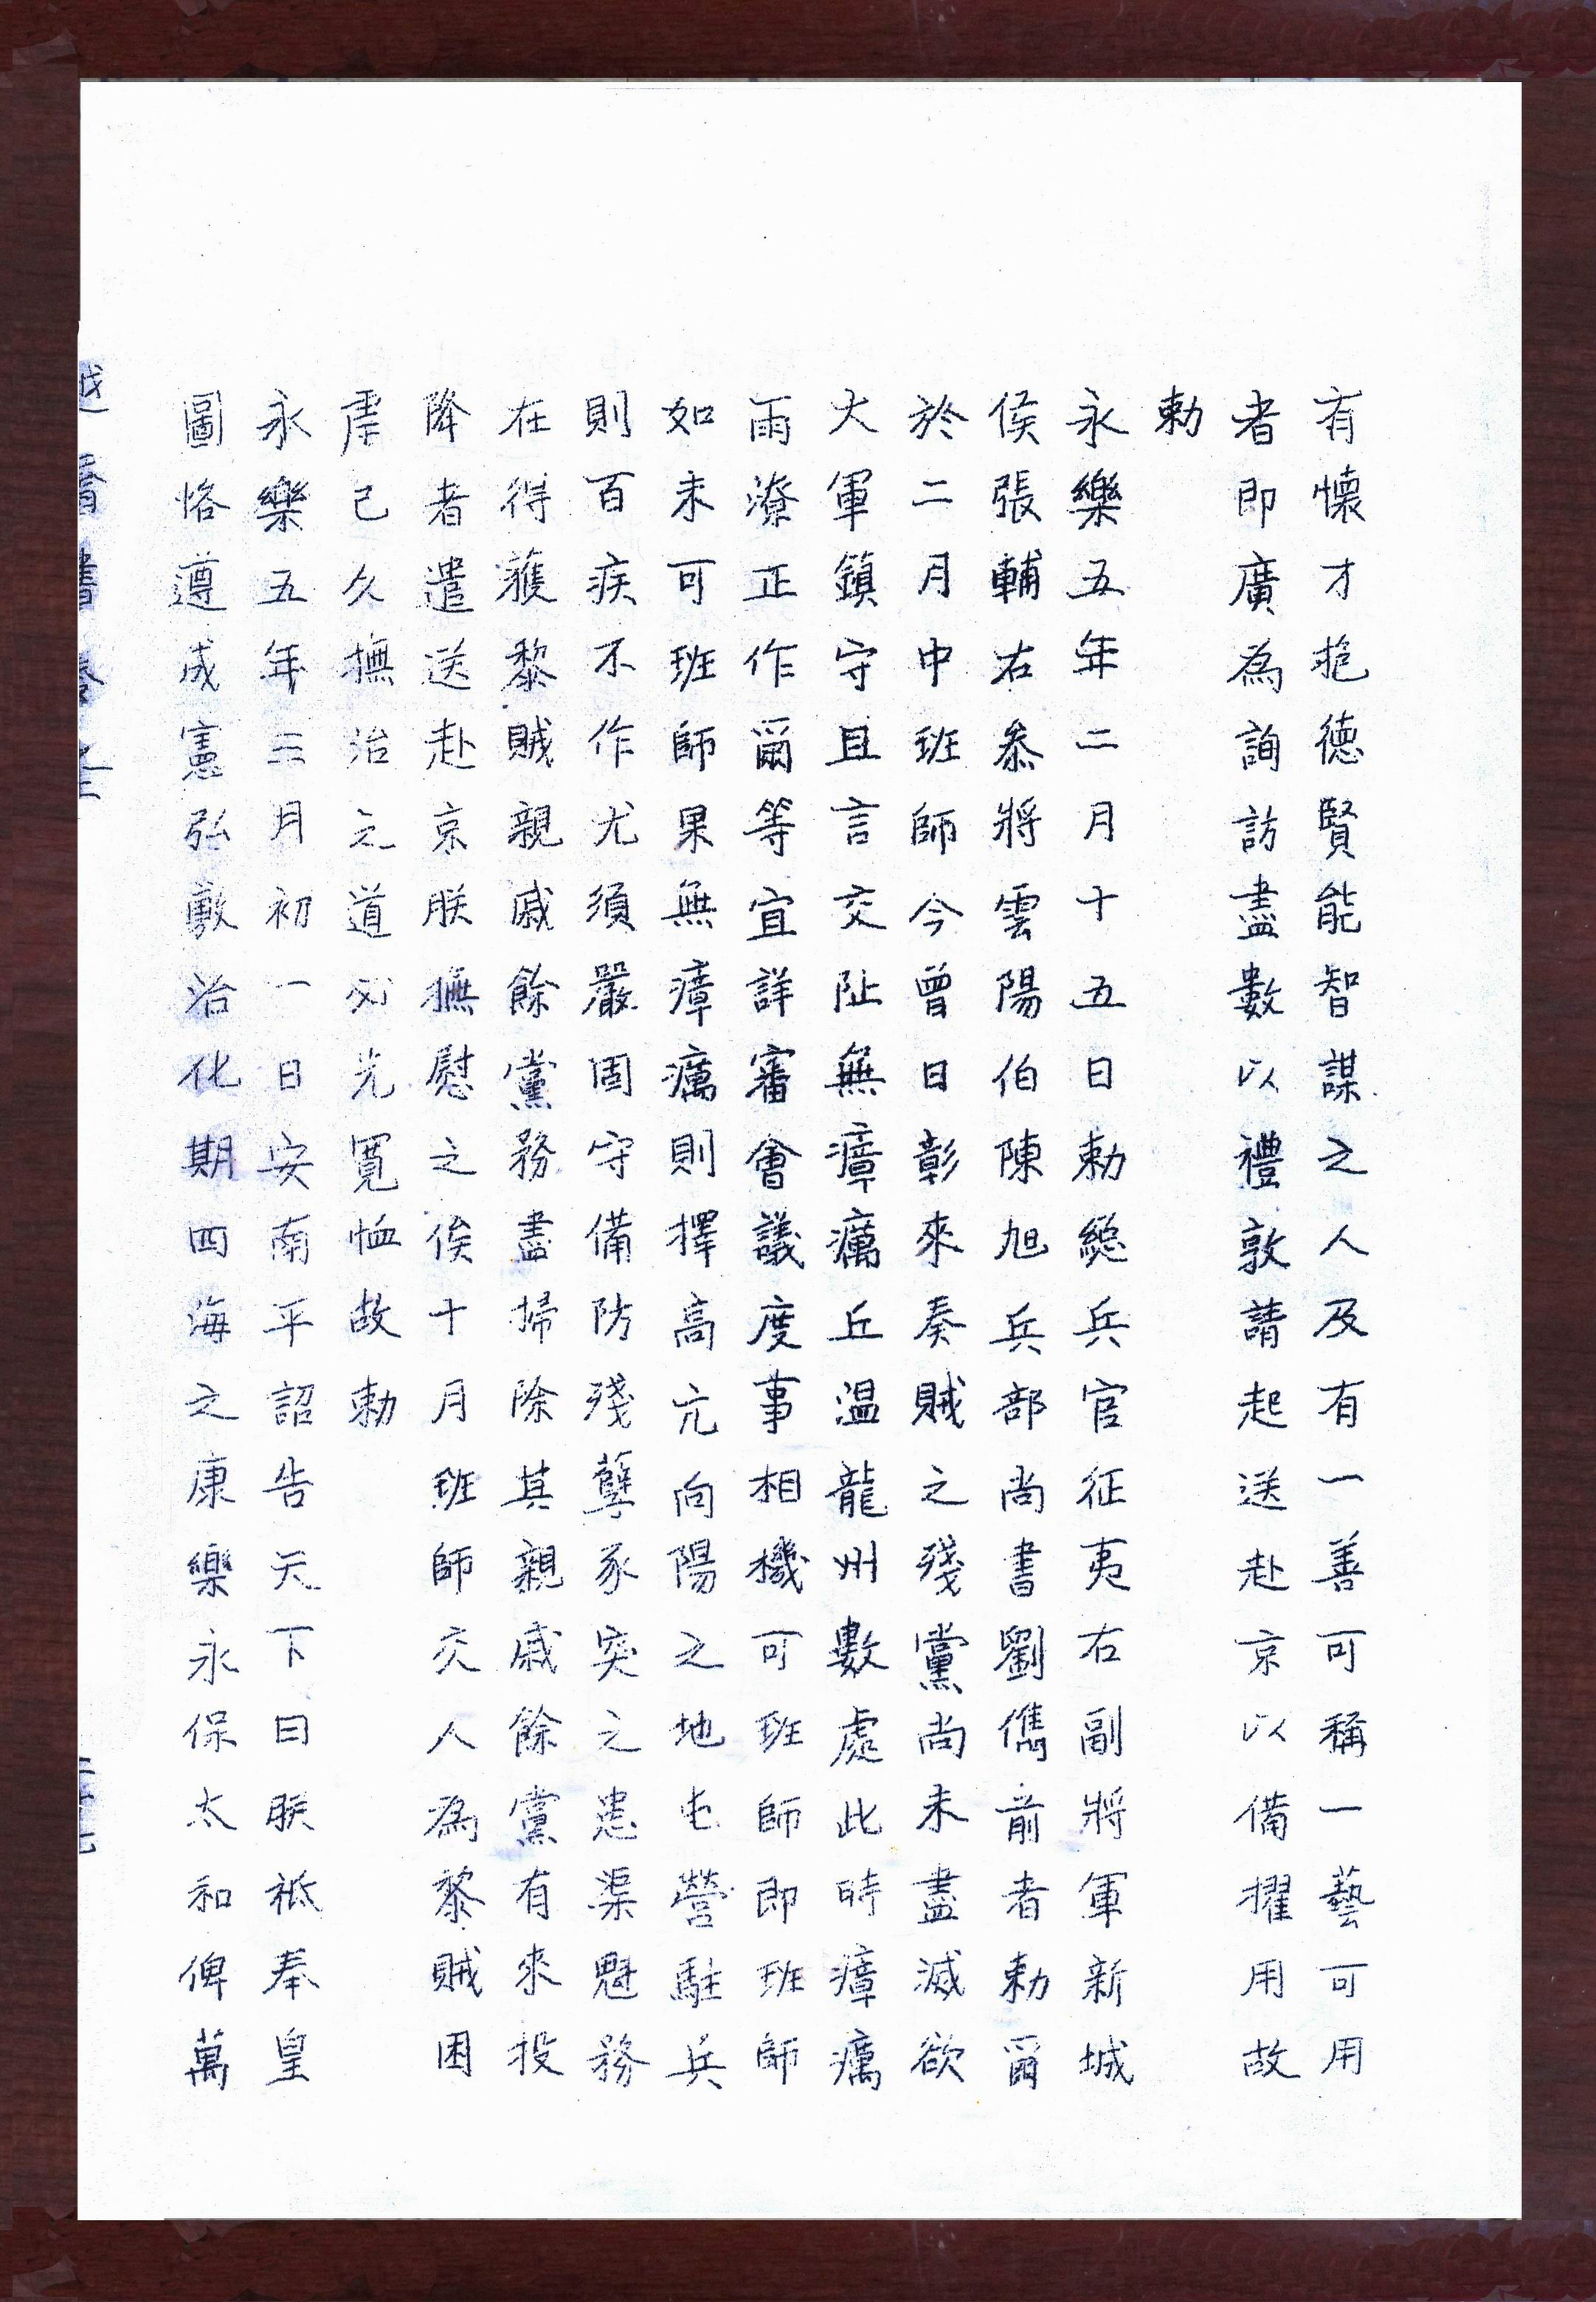 有懷才抱德賢能智謀之人及有一善可稱一藝可用
者即廣為詢訪盡數以禮敦請起送赴京以備擢用故
勅
永樂五年二月十五日勅総兵官征夷右副將軍新城
侯張輔右叅將雲陽伯陳旭兵部尚書劉儁前者勅爾
於二月中班師今曾日彰來奏賊之殘黨尚未盡滅欲
大軍鎮守且言交阯無瘴癘丘温龍州數處此時瘴癘
雨潦正作爾等宜詳審會議度事相機可班師即班師
如未可班師果無瘴癘則擇高亢向陽之地屯營駐兵
則百疾不作尤須嚴固守備防殘孽豕突之患渠魁務
在得獲黎賊親戚餘黨務盡掃除其親戚餘黨有來投
降者遣送赴京朕撫慰之俟十月班師交人為黎賊困
虐已久撫治之道必光寬恤故勅
永樂五年三月初一日安南平詔告天下曰朕祗奉皇
圖恪遵成憲弘敷治化期四海之康樂永保太和俾萬
越嶠書卷之二